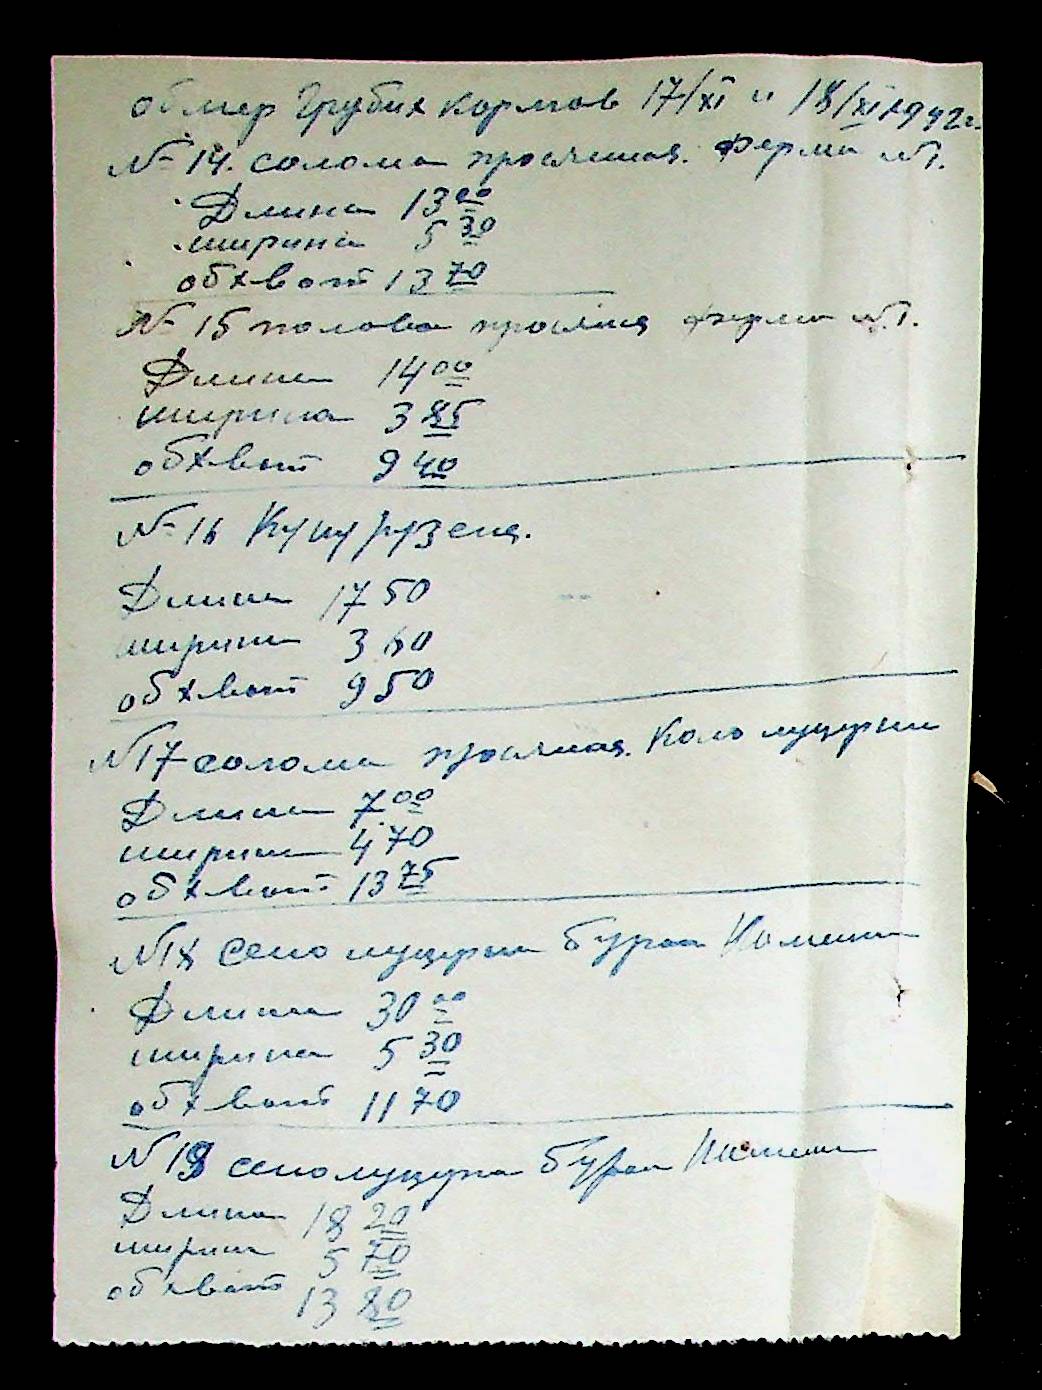 обмер грубих кормов 17/XI и 18/XI 1942г.
№ 14. солома просяная. Ферма №1.
Длина 13 00
ширина 5 30
обхват 13 70
№ 15 полова просяна ферма №1.
Длина 14 00
ширина 3 85
обхват 9 40
№ 16 Кукурузена.
Длина 17 50
ширина 3 60
обхват 9 50
№17 солома просяная. Коло луцерни
Длина 7 00
ширина 4 70
обхват 13 75
№18 Сено луцерна бурая
Длина 30 00
ширина 5 30
обхват 11 70
№ 19 сено луцерна бурая
Длина 18 20
ширина 5 70
обхват 13 80